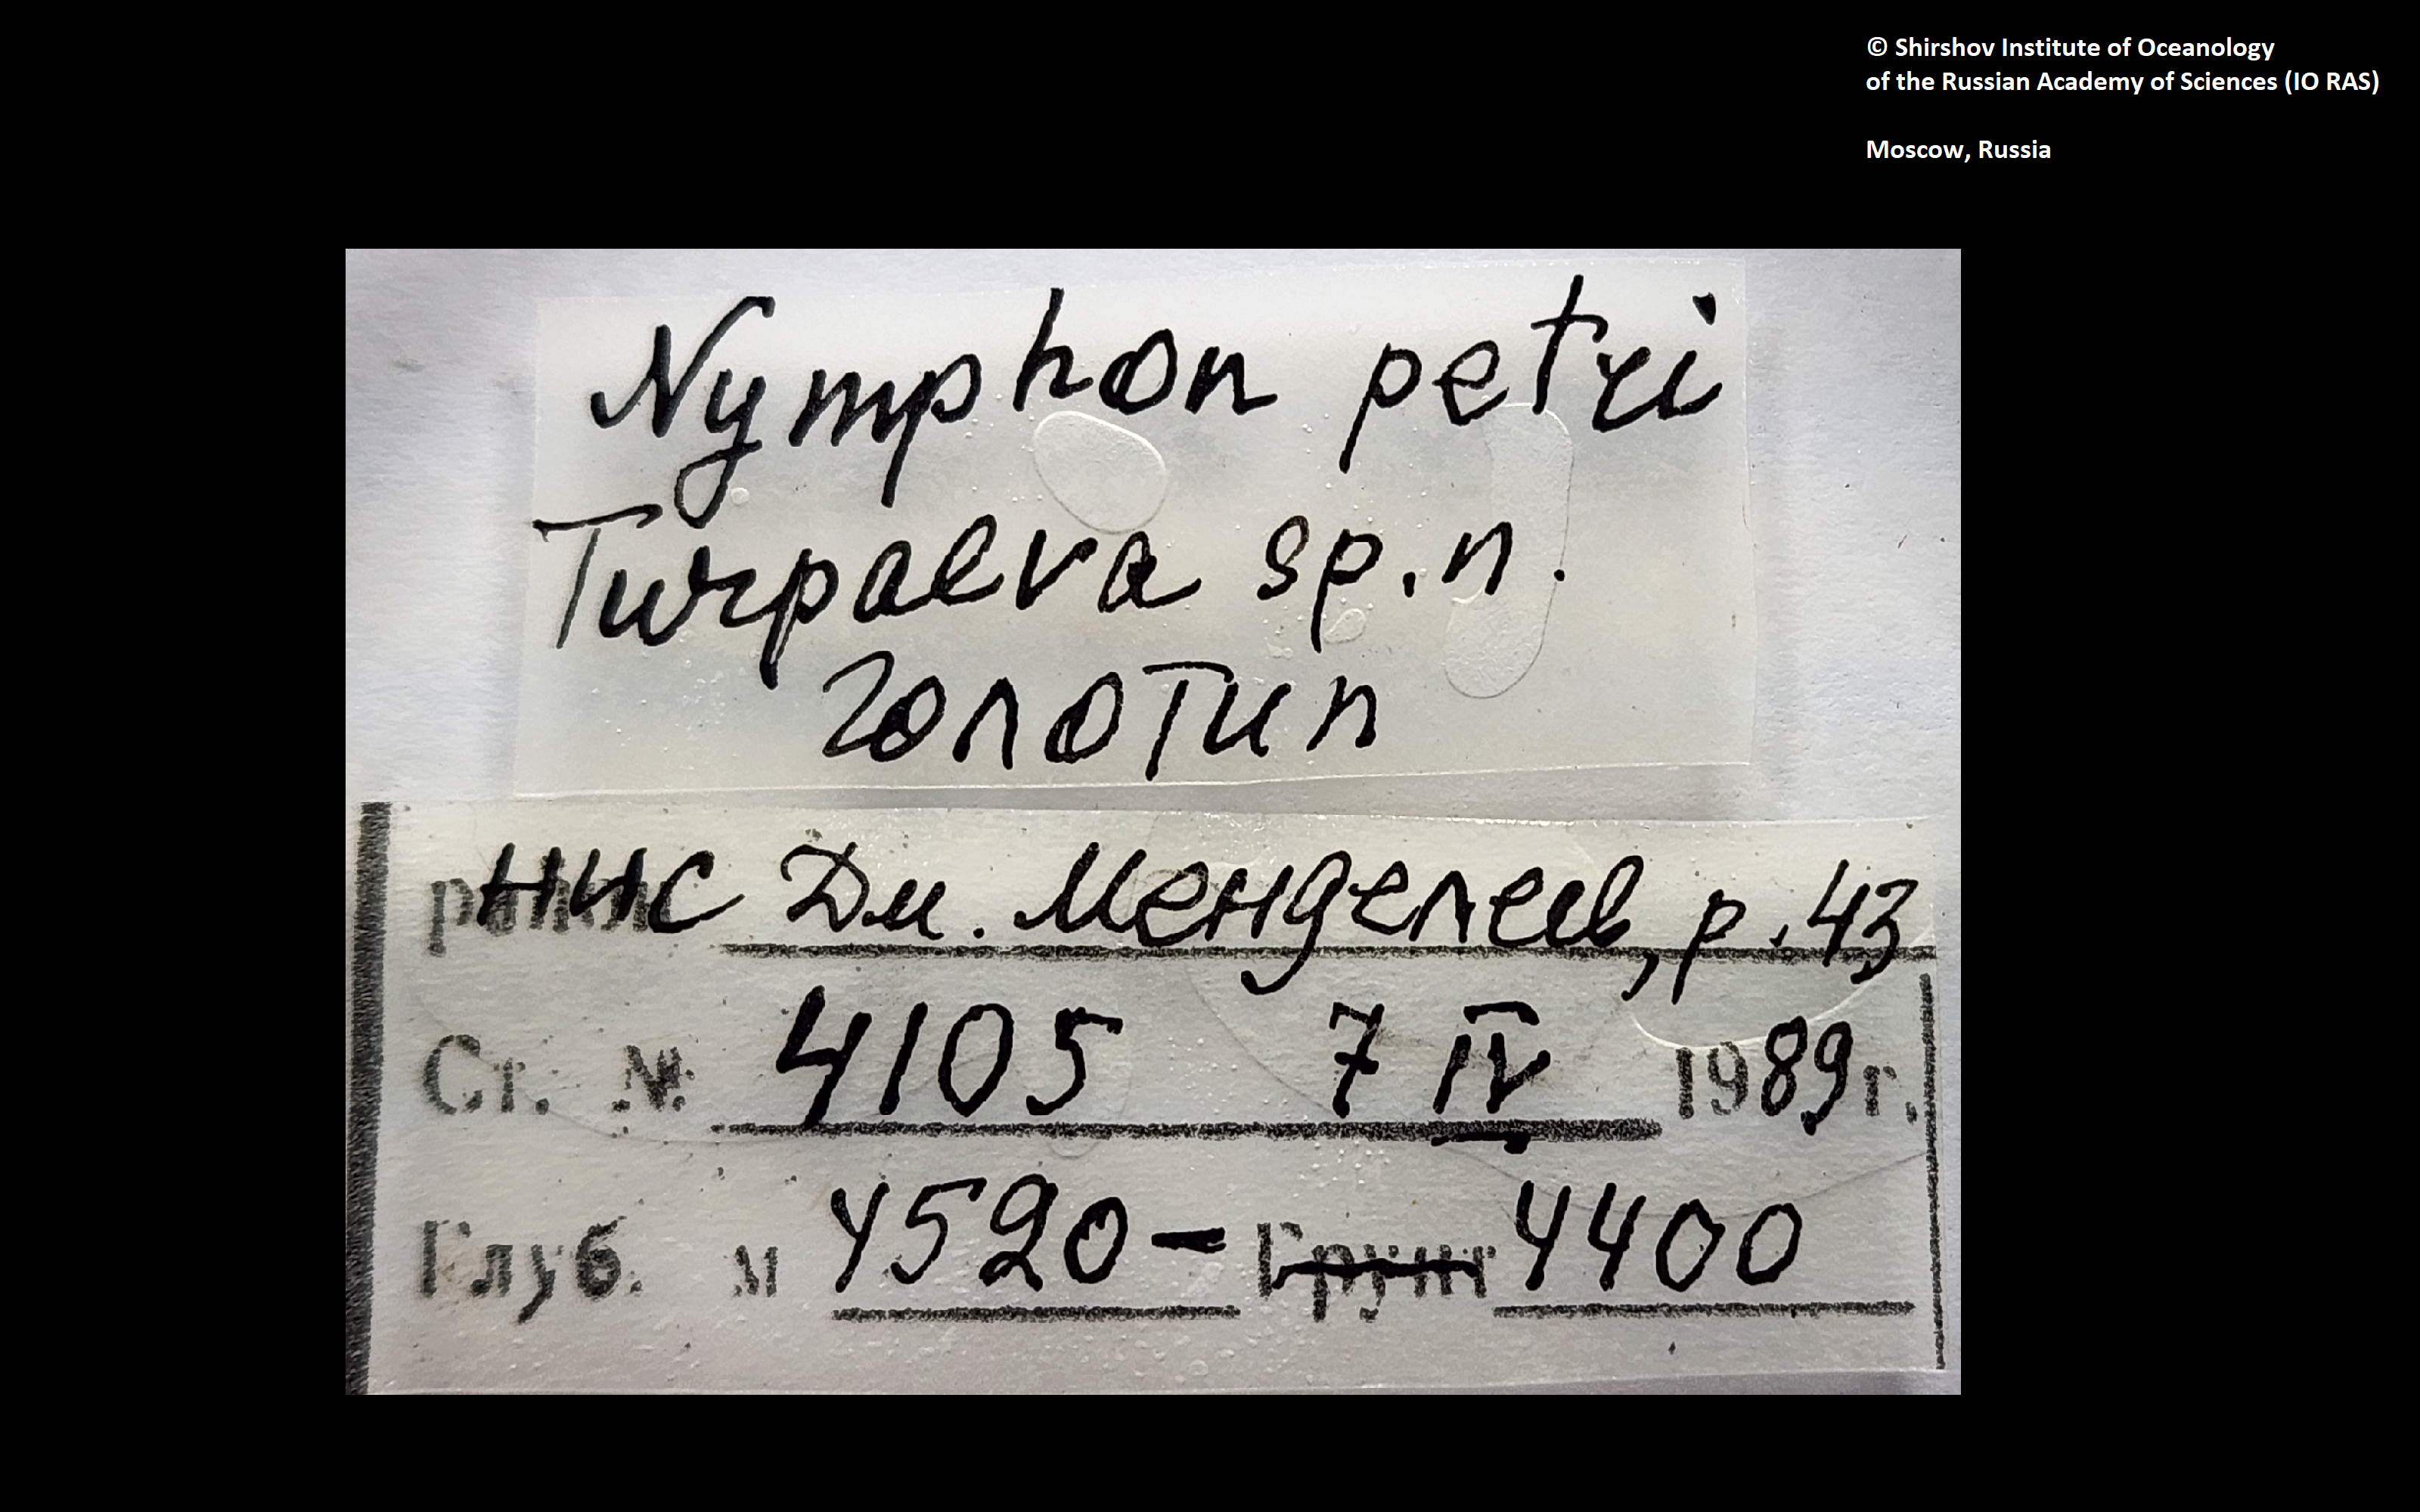 © Shirshov Institute of Oceanology
of the Russian Academy of Sciences (IO RAS)
Moscow, Russia
Nymphon petri
Turpaeva sp.n.
голотип
НИС Дм. Менделеев, р.43
Ст. № 4105 7 IV 1989г.
Глуб. м 4520- Грунт 4400